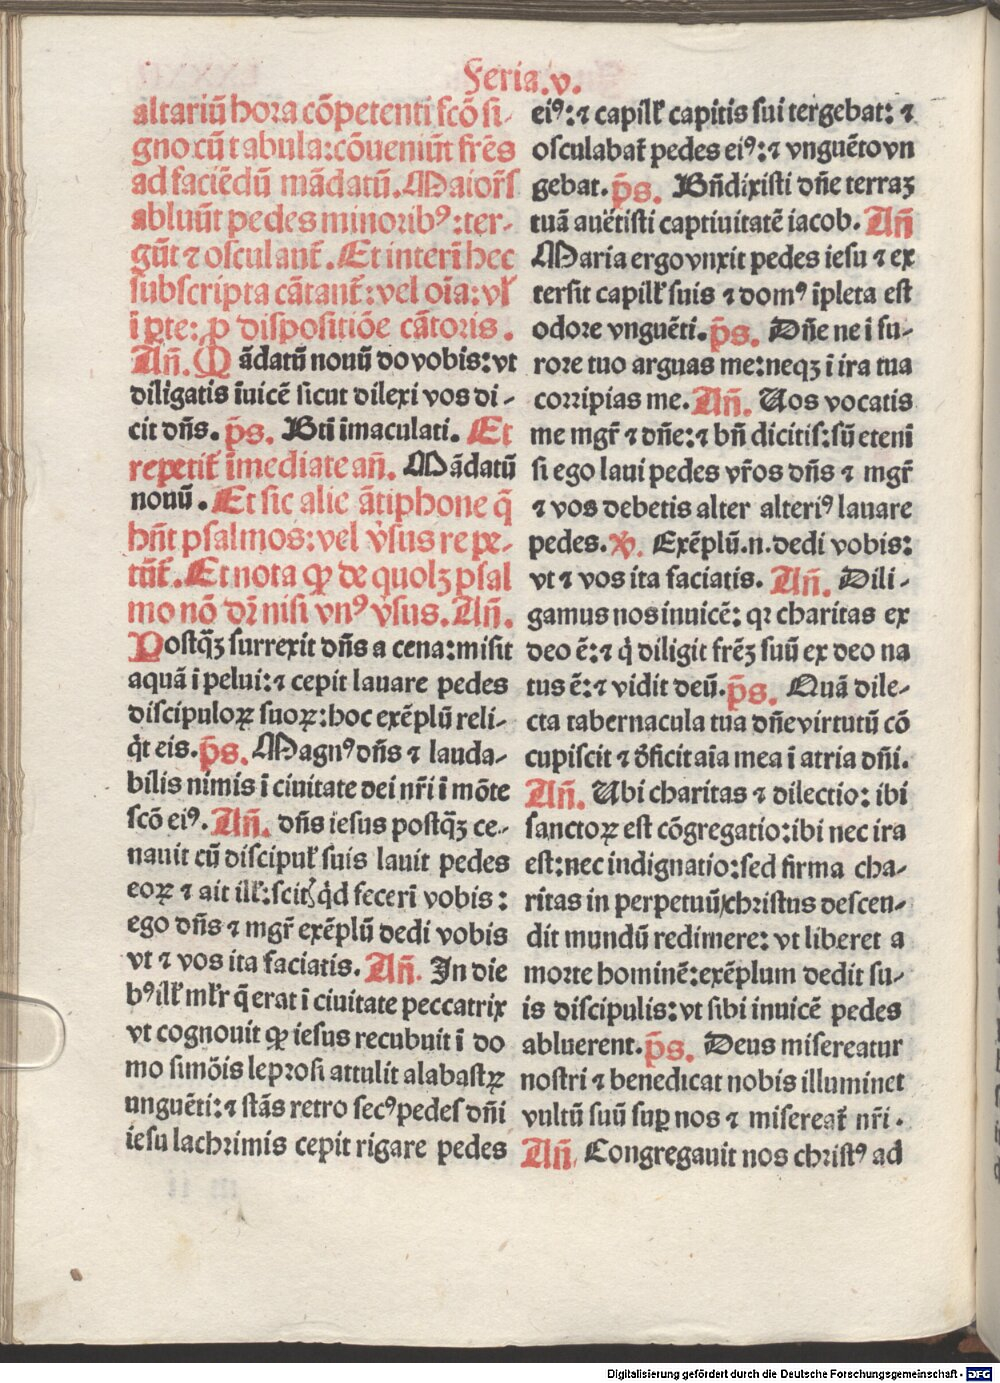 Feria.v.
altariū hora cōpetenti fcō si-
gno cū tabula:cōueniūt fr̄es
ad faciēdū mādatū.Maior̄s
abluūt pedes minoribꝰ:ter-
gūt ⁊ osculant̄.Et interī hec
subscripta cātant̄:vel oīa:vꝉ
ī ꝑte: ꝑ dispositiōe cātoris.
Añ. Mādatū nouū do vobis:vt
diligatis īuicē sicut dilexi vos di-
cit dñs. p̄s. Bt̄i īmaculati. Et
repetit̄ īmediate añ. Mādatū
nouū. Et sic alie ātiphone q̄
hñt psalmos:vel v̓sus repe-
tūt̄. Et nota ꝙ de quolꝫ psal
mo nō dr̄ nisi vnꝰ v̓sus. Añ.
Postq̄ꝫ surrexit dñs a cena:misit
aquā ī pelui:⁊ cepit lauare pedes
discipuloꝝ suoꝝ:hoc exēplū reli-
q̓t eis. p̄s. Magnꝰ dñs ⁊ lauda-
bilis nimis ī ciuitate dei nr̄i ī mōte
scō eiꝰ. Añ. dñs iesus postq̄ꝫ ce-
nauit cū discipuꝉ suis lauit pedes
eoꝝ ⁊ ait ilꝉ:scitꝭ q̓d fecerī vobis:
ego dñs ⁊ mgr̄ exēplū dedi vobis
vt ⁊ vos ita faciatis. Añ. In die
bꝰ ilꝉ mlr̄ q̄ erat ī ciuitate peccatrix
vt cognouit ꝙ iesus recubuit ī do
mo simōis leprosi attulit alabastꝝ
unguēti:⁊ stās retro secꝰ pedes dñi
iesu lachrimis cepit rigare pedes
eiꝰ:⁊ capilꝉ capitis sui tergebat: ⁊
osculabat̄ pedes eiꝰ:⁊ vnguēto vn
gebat. p̄s. Bñdixisti dñe terraꝫ
tuā auētisti captiuitatē iacob. Añ
Maria ergo vnxit pedes iesu ⁊ ex
tersit capilꝉ suis ⁊ domꝰ īpleta est
odore vnguēti. p̄s. Dñe ne ī fu-
rore tuo arguas me:neqꝫ ī ira tua
corripias me. Añ. Uos vocatis
me mgr̄ ⁊ dñe:⁊ bñ dicitis:sū etenī
si ego laui pedes vr̄os dñs ⁊ mgr̄
⁊ vos debetis alter alteriꝰ lauare
pedes. ℣. Exēplū.n.dedi vobis:
vt ⁊ vos ita faciatis. Añ. Dili-
gamus nos inuicē: qꝛ charitas ex
deo ē:⁊ q̓ diligit fr̄eꝫ suū ex deo na
tus ē:⁊ vidit deū. p̄s. Quā dile-
cta tabernacula tua dñe virtutū cō
cupiscit ⁊ d̓ficit aīa mea ī atria dñi.
Añ. Ubi charitas ⁊ dilectio: ibi
sanctoꝝ est cōgregatio:ibi nec ira
est:nec indignatio:sed firma cha-
ritas in perpetuū/christus descen-
dit mundū redimere: vt liberet a
morte hominē:exēplum dedit su-
is discipulis:vt sibi inuicē pedes
abluerent. p̄s. Deus misereatur
nostri ⁊ benedicat nobis illuminet
vultū suū suꝑ nos ⁊ misereat̄ nr̄i.
Añ. Congregauit nos christꝰ ad
Digitalisierung gefördert durch die Deutsche Forschungsgemeinschaft - DFG